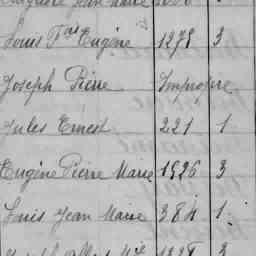 Jean Marie
Louis Fois Eugène 1278 3
Joseph Pierre Impropre
Jules Ernest 221 1
Eugène Pierre Marie 1926 3
Louis Jean Marie 384 1